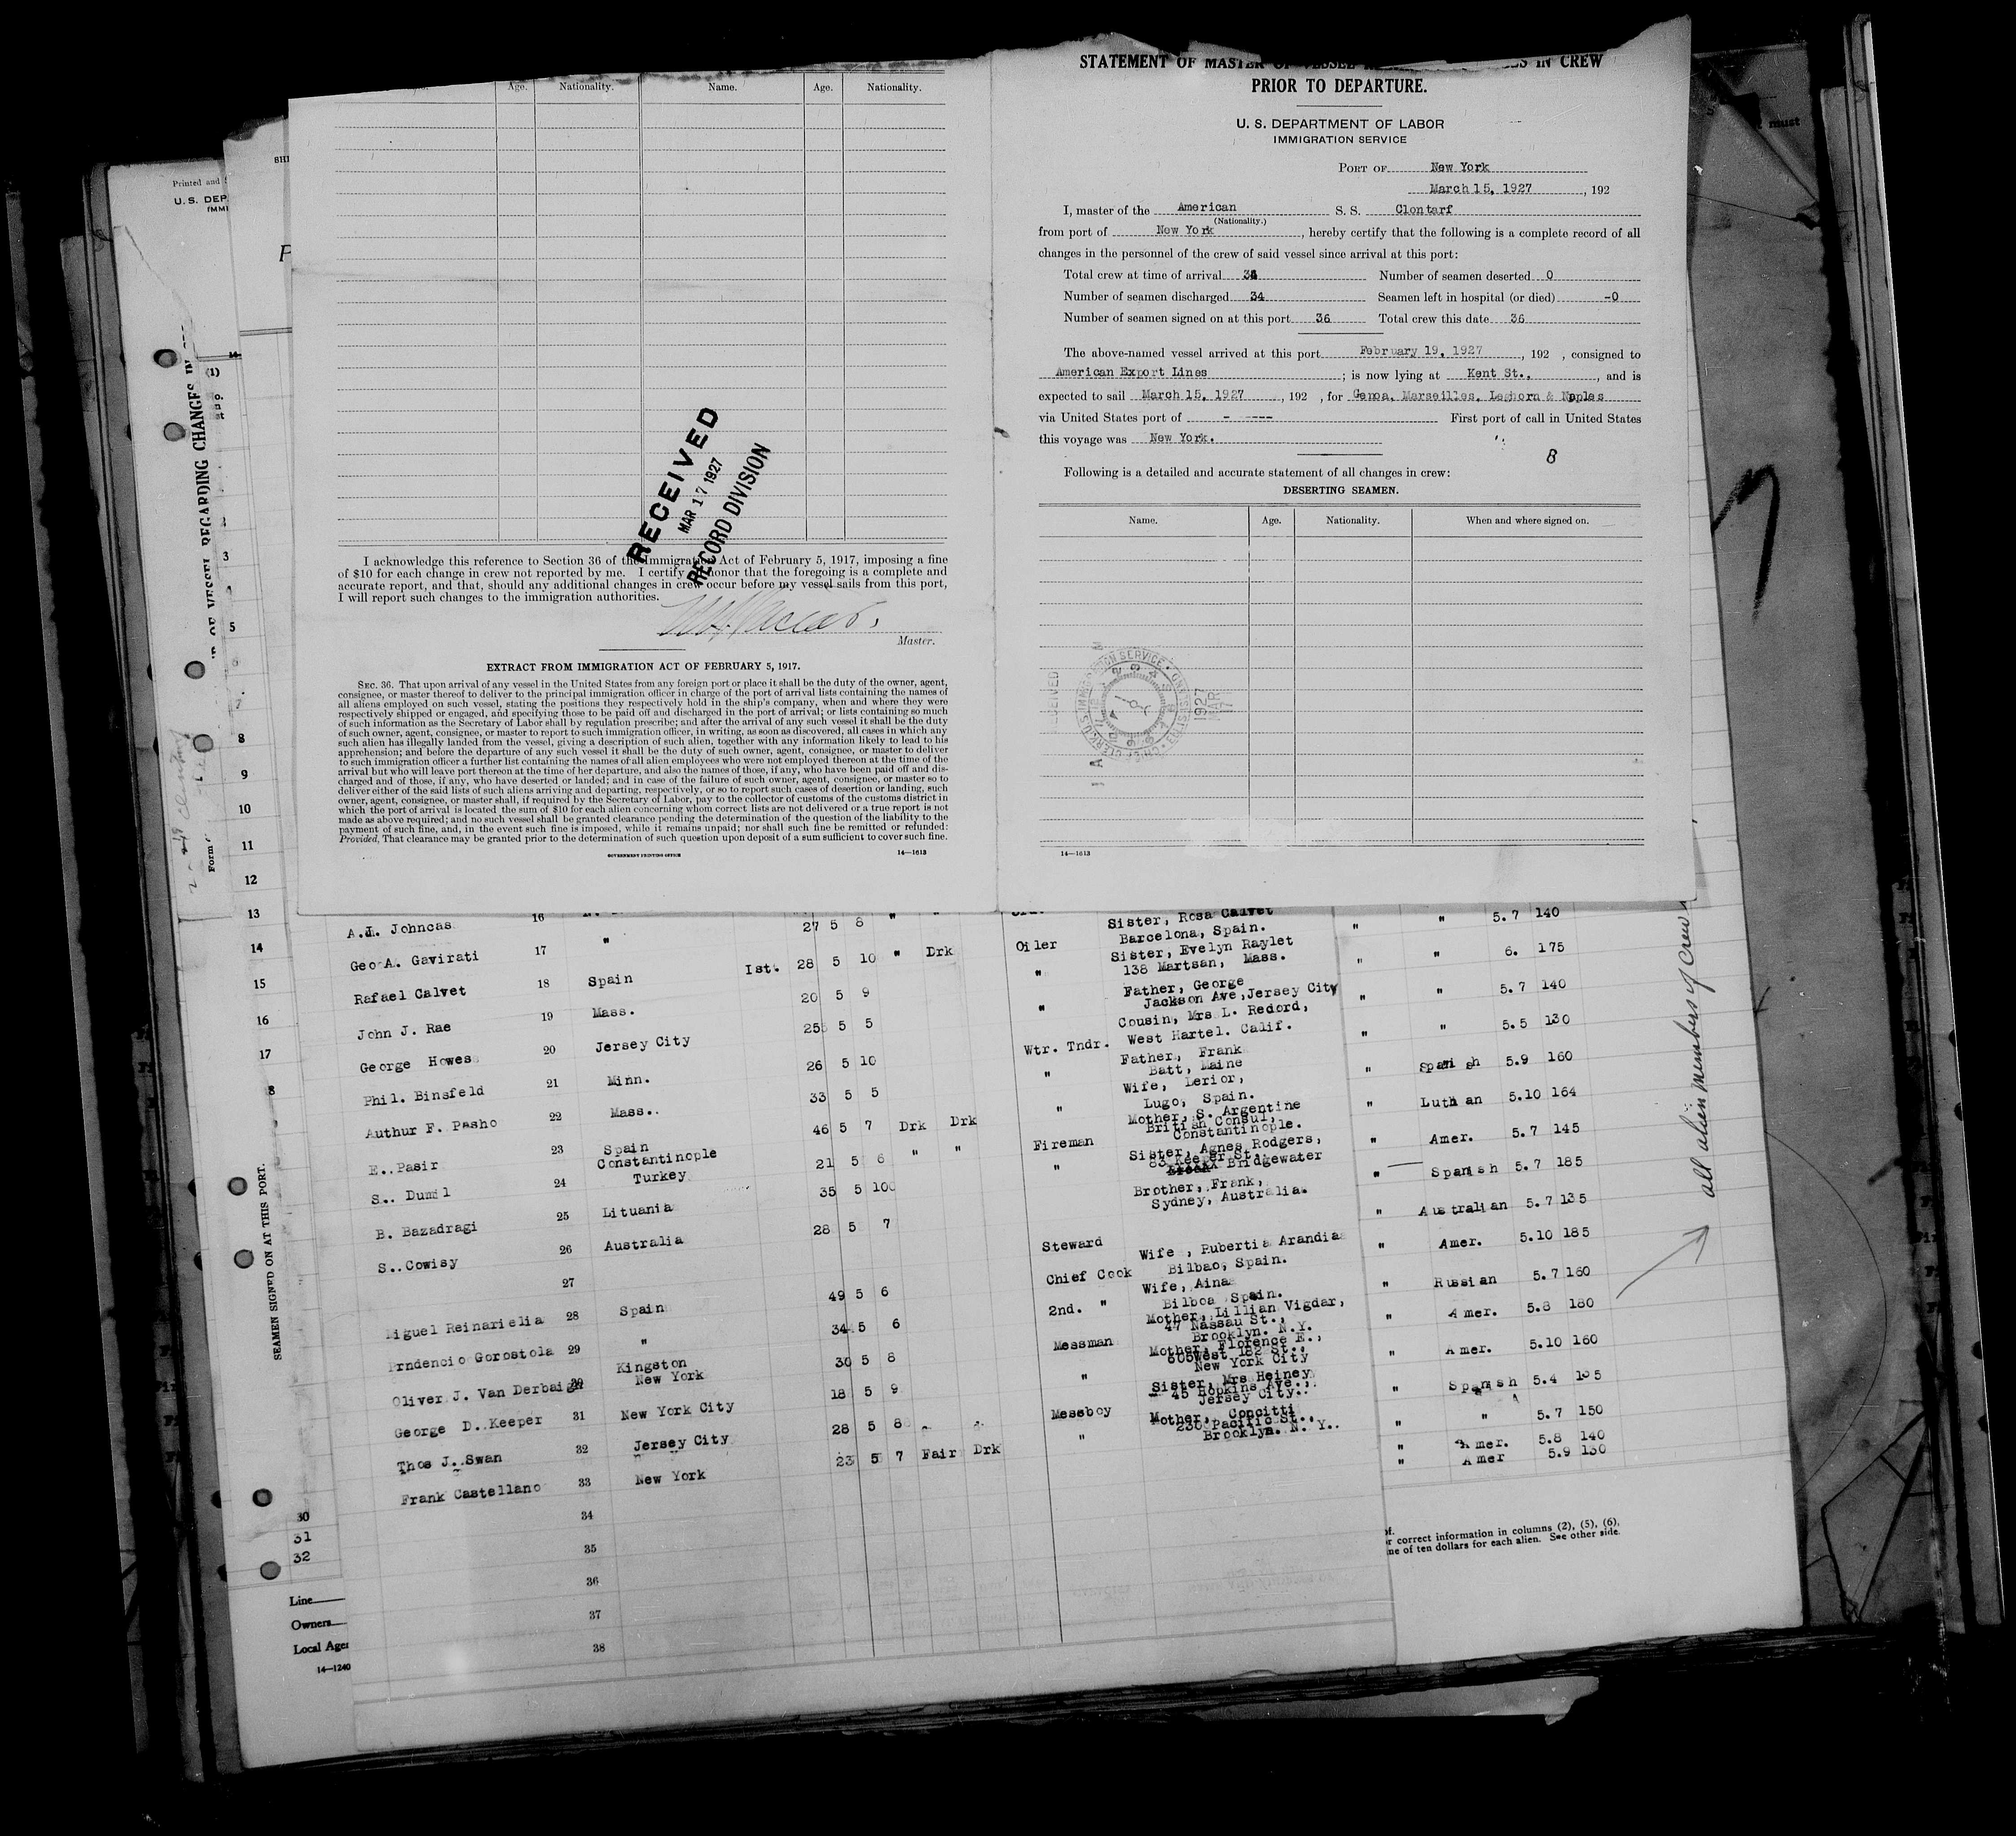 Age. Nationality. Name. Age. Nationality.
RECEIVED
MAR 17 1927
RECORD DIVISION
I acknowledge this reference to Section 36 of the Immigration Act of February 5, 1917, imposing a fine
of $10 for each change in crew not reported by me. I certify honor that the foregoing is a complete and
accurate report, and that, should any additional changes in crew occur before my vessel sails from this port,
I will report such changes to the immigration authorities.
Master.
EXTRACT FROM IMMIGRATION ACT OF FEBRUARY 5, 1917.
SEC. 36. That upon arrival of any vessel in the United States from any foreign port or place it shall be the duty of the owner, agent,
consignee, or master thereof to deliver to the principal immigration officer in charge of the port of arrival lists containing the names of
all aliens employed on such vessel, stating the positions they respectively hold in the ship's company, when and where they were
respectively shipped or engaged, and specifying those to be paid off and discharged in the port of arrival; or lists containing so much
of such information as the Secretary of Labor shall by regulation prescribe; and after the arrival of any such vessel it shall be the duty
of such owner, agent, consignee, or master to report to such immigration officer, in writing, as soon as discovered, all cases in which any
such alien has illegally landed from the vessel, giving a description of such alien, together with any information likely to lead to his
apprehension; and before the departure of any such vessel it shall be the duty of such owner, agent, consignee, or master to deliver
to such immigration officer a further list containing the names of all alien employees who were not employed thereon at the time of the
arrival but who will leave port thereon at the time of her departure, and also the names of those, if any, who have been paid off and dis-
charged and of those, if any, who have deserted or landed; and in case of the failure of such owner, agent, consignee, or master so to
deliver either of the said lists of such aliens arriving and departing, respectively, or so to report such cases of desertion or landing, such
owner, agent, consignee, or master shall, if required by the Secretary of Labor, pay to the collector of customs of the customs district in
which the port of arrival is located the sum of $10 for each alien concerning whom correct lists are not delivered or a true report is not
made as above required; and no such vessel shall be granted clearance pending the determination of the question of the liability to the
payment of such fine, and, in the event such fine is imposed, while it remains unpaid; nor shall such fine be remitted or refunded:
Provided, That clearance may be granted prior to the determination of such question upon deposit of a sum sufficient to cover such fine.
GOVERNMENT PRINTING OFFICE 14—1613
STATEMENT OF MASTER OF VESSEL IN CREW
PRIOR TO DEPARTURE.
U. S. DEPARTMENT OF LABOR
IMMIGRATION SERVICE
PORT OF New York
March 15, 1927, 192
I, master of the American S. S. Clontarf
(Nationality.)
from port of New York, hereby certify that the following is a complete record of all
changes in the personnel of the crew of said vessel since arrival at this port:
Total crew at time of arrival Number of seamen deserted 0
Number of seamen discharged 34 Seamen left in hospital (or died) -0
Number of seamen signed on at this port 36 Total crew this date 36
The above-named vessel arrived at this port February 19, 1927, 192 , consigned to
American Export Lines; is now lying at Kent St., , and is
expected to sail March 15, 1927, 192 , for Genoa, Marseilles, Leghorn & Naples
via United States port of - ---- First port of call in United States
this voyage was New York.
B
Following is a detailed and accurate statement of all changes in crew:
DESERTING SEAMEN.
Name. Age. Nationality. When and where signed on.
14—1613
Printed and
U. S. DEP
(IMMI
SHI
P
must
(1)
OF VESSEL REGARDING CHANGES IN
Form
3
5
7
8
9
10
11
12
13
14
15
16
17
8
30
31
32
SEAMEN SIGNED ON AT THIS PORT.
Line
Owners
Local Age
14—1240
A.I. Johncas 16 27 5 8 " "
Geo A. Gavirati 17 " Ist. 28 5 10 " Drk
Rafael Calvet 18 Spain 20 5 9
John J. Rae 19 Mass. 25 5 5
George Howes 20 Jersey City 26 5 10
Phil. Binsfeld 21 Minn. 33 5 5
Authur F. Pasho 22 Mass. 46 5 7 Drk Drk
E. Pasir 23 Spain 21 5 6 " "
S. Dumil 24 Constantinople
Turkey 35 5 10
B. Bazadragi 25 Lituania 28 5 7
S. Cowisy 26 Australia
27 49 5 6
iguel Reinarielia 28 Spain 34 5 6
rndencio Gorostola 29 " 30 5 8
Oliver J. Van Derbaigh 30 Kingston
New York 18 5 9
George D. Keeper 31 New York City 28 5 8
Thos J. Swan 32 Jersey City 23 5 7 Fair Drk
Frank Castellano 33 New York
34
35
36
37
38
Oiler
"
"
Wtr. Tndr.
"
"
Fireman
"
Steward
Chief Cook
2nd. "
Messman
"
Messboy
"
Sister, Rosa Calvet
Barcelona, Spain.
Sister, Evelyn Raylet
138 Martsan, Mass.
Father, George
Jackson Ave, Jersey City
Cousin, Mrs L. Redord,
West Hartel. Calif.
Father, Frank
Batt, Maine
Wife, Lerior,
Lugo, Spain.
Mother, S. Argentine
British Consul,
Constantinople.
Sister, Agnes Rodgers,
83 Keeper St.,
Bridgewater
Brother, Frank,
Sydney, Australia.
Wife, Rubertia Arandia
Bilbao, Spain.
Wife, Aina
Bilboa Spain.
Mother, Lillian Vigdar,
47 Nassau St.,
Brooklyn. N.Y.
Mother, Florence E.,
605 West 182 St.,
New York City
Sister, Mrs Heiney
45 Hopkins Ave.,
Jersey City.
Mother, Concitti
230 Pacific St.,
Brooklyn. N. Y.
" " 5.7 140
" " 6. 175
" " 5.7 140
" " 5.5 130
" Spanish 5.9 160
" Luthan 5.10 164
" Amer. 5.7 145
" Spanish 5.7 185
" Australian 5.7 135
" Amer. 5.10 185
" Russian 5.7 160
" Amer. 5.8 180
" Amer. 5.10 160
" Spanish 5.4
" " 5.7 150
" Amer. 5.8 140
" Amer 5.9 130
all alien members of crew
r correct information in columns (2), (5), (6),
ne of ten dollars for each alien. See other side.